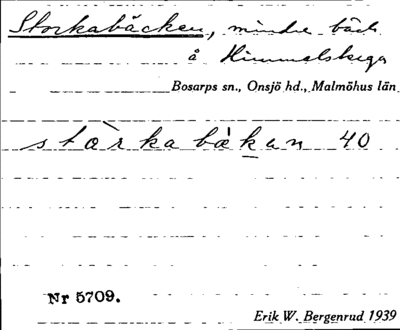 Storkabäcken, mindre bäck
å Himmelstega
Bosarps sn., Onsjö hd., Malmöhus län
stòrkabäkan 40
Nr 5709.
Erik W. Bergenrud 1939